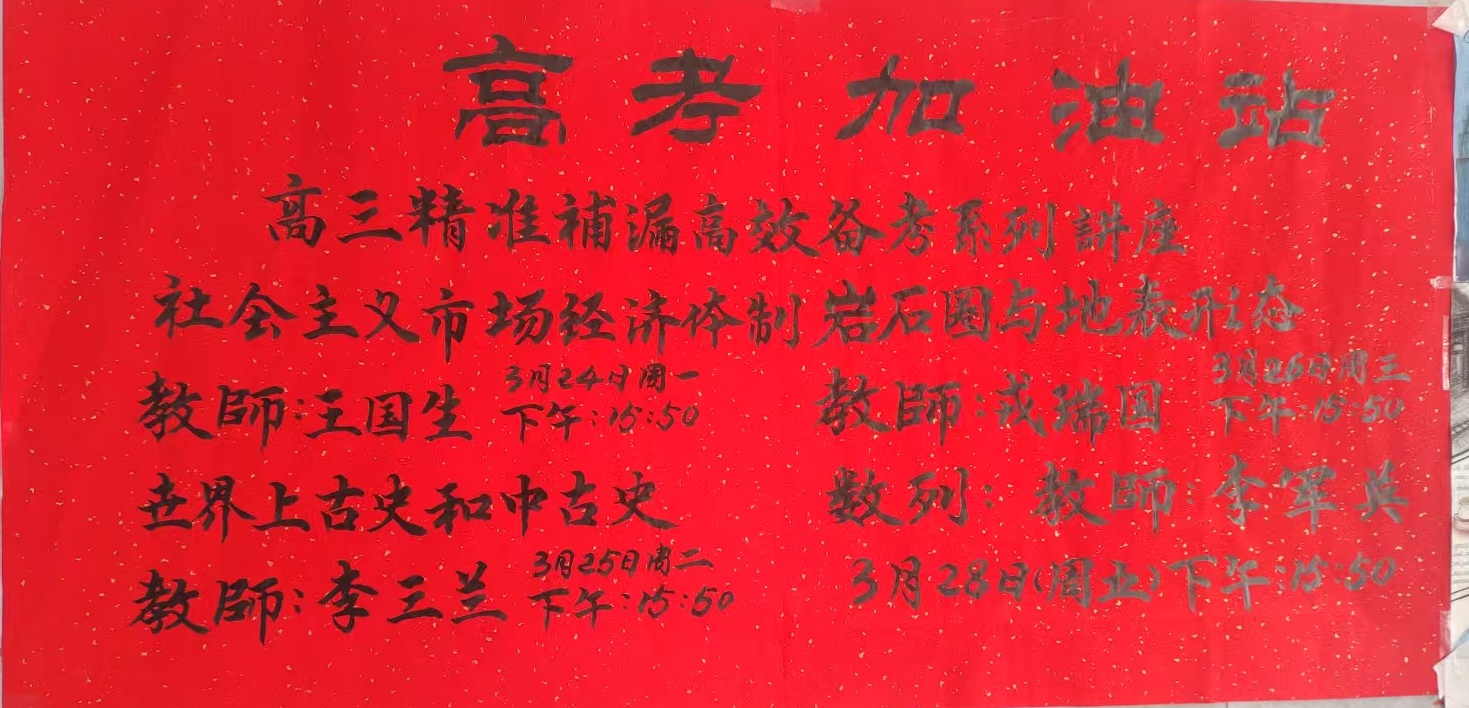 高考加油站
高三精准補漏高效备考系列講座
社会主义市场经济体制
教師:王国生
3月24日周一
下午:15:50
世界上古史和中古史
教師:李三兰
3月25日周二
下午:15:50
岩石圈与地表形态
教師:戎瑞国
3月26日周三
下午:15:50
数列:教師:李軍英
3月28日(周五)下午:15:50